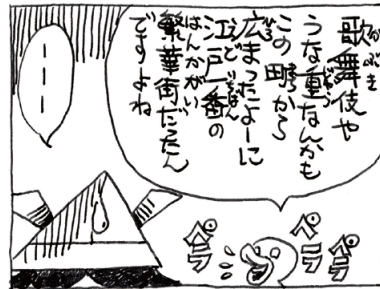 歌舞伎や
うな重なんかも
この町から
広まったよーに
江戸一番の
繁華街だったん
ですよね
ペラ
ペラ
ペラ
ーーー